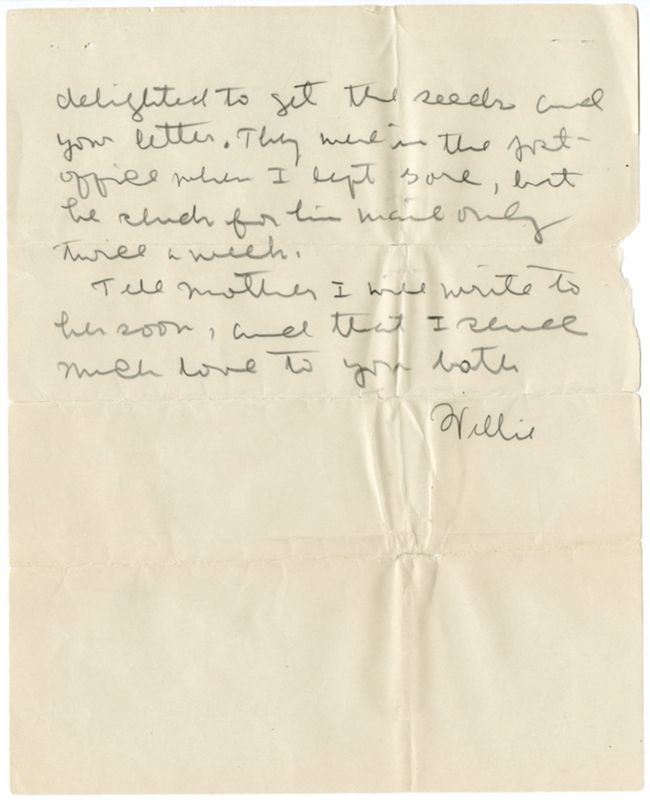 delighted to get the seeds and
your letter. They were in the post-
office when I left, but
he sends for his mail only
twice a week.
Tell mother I will write to
her soon, and that I send
much love to you both
Willie